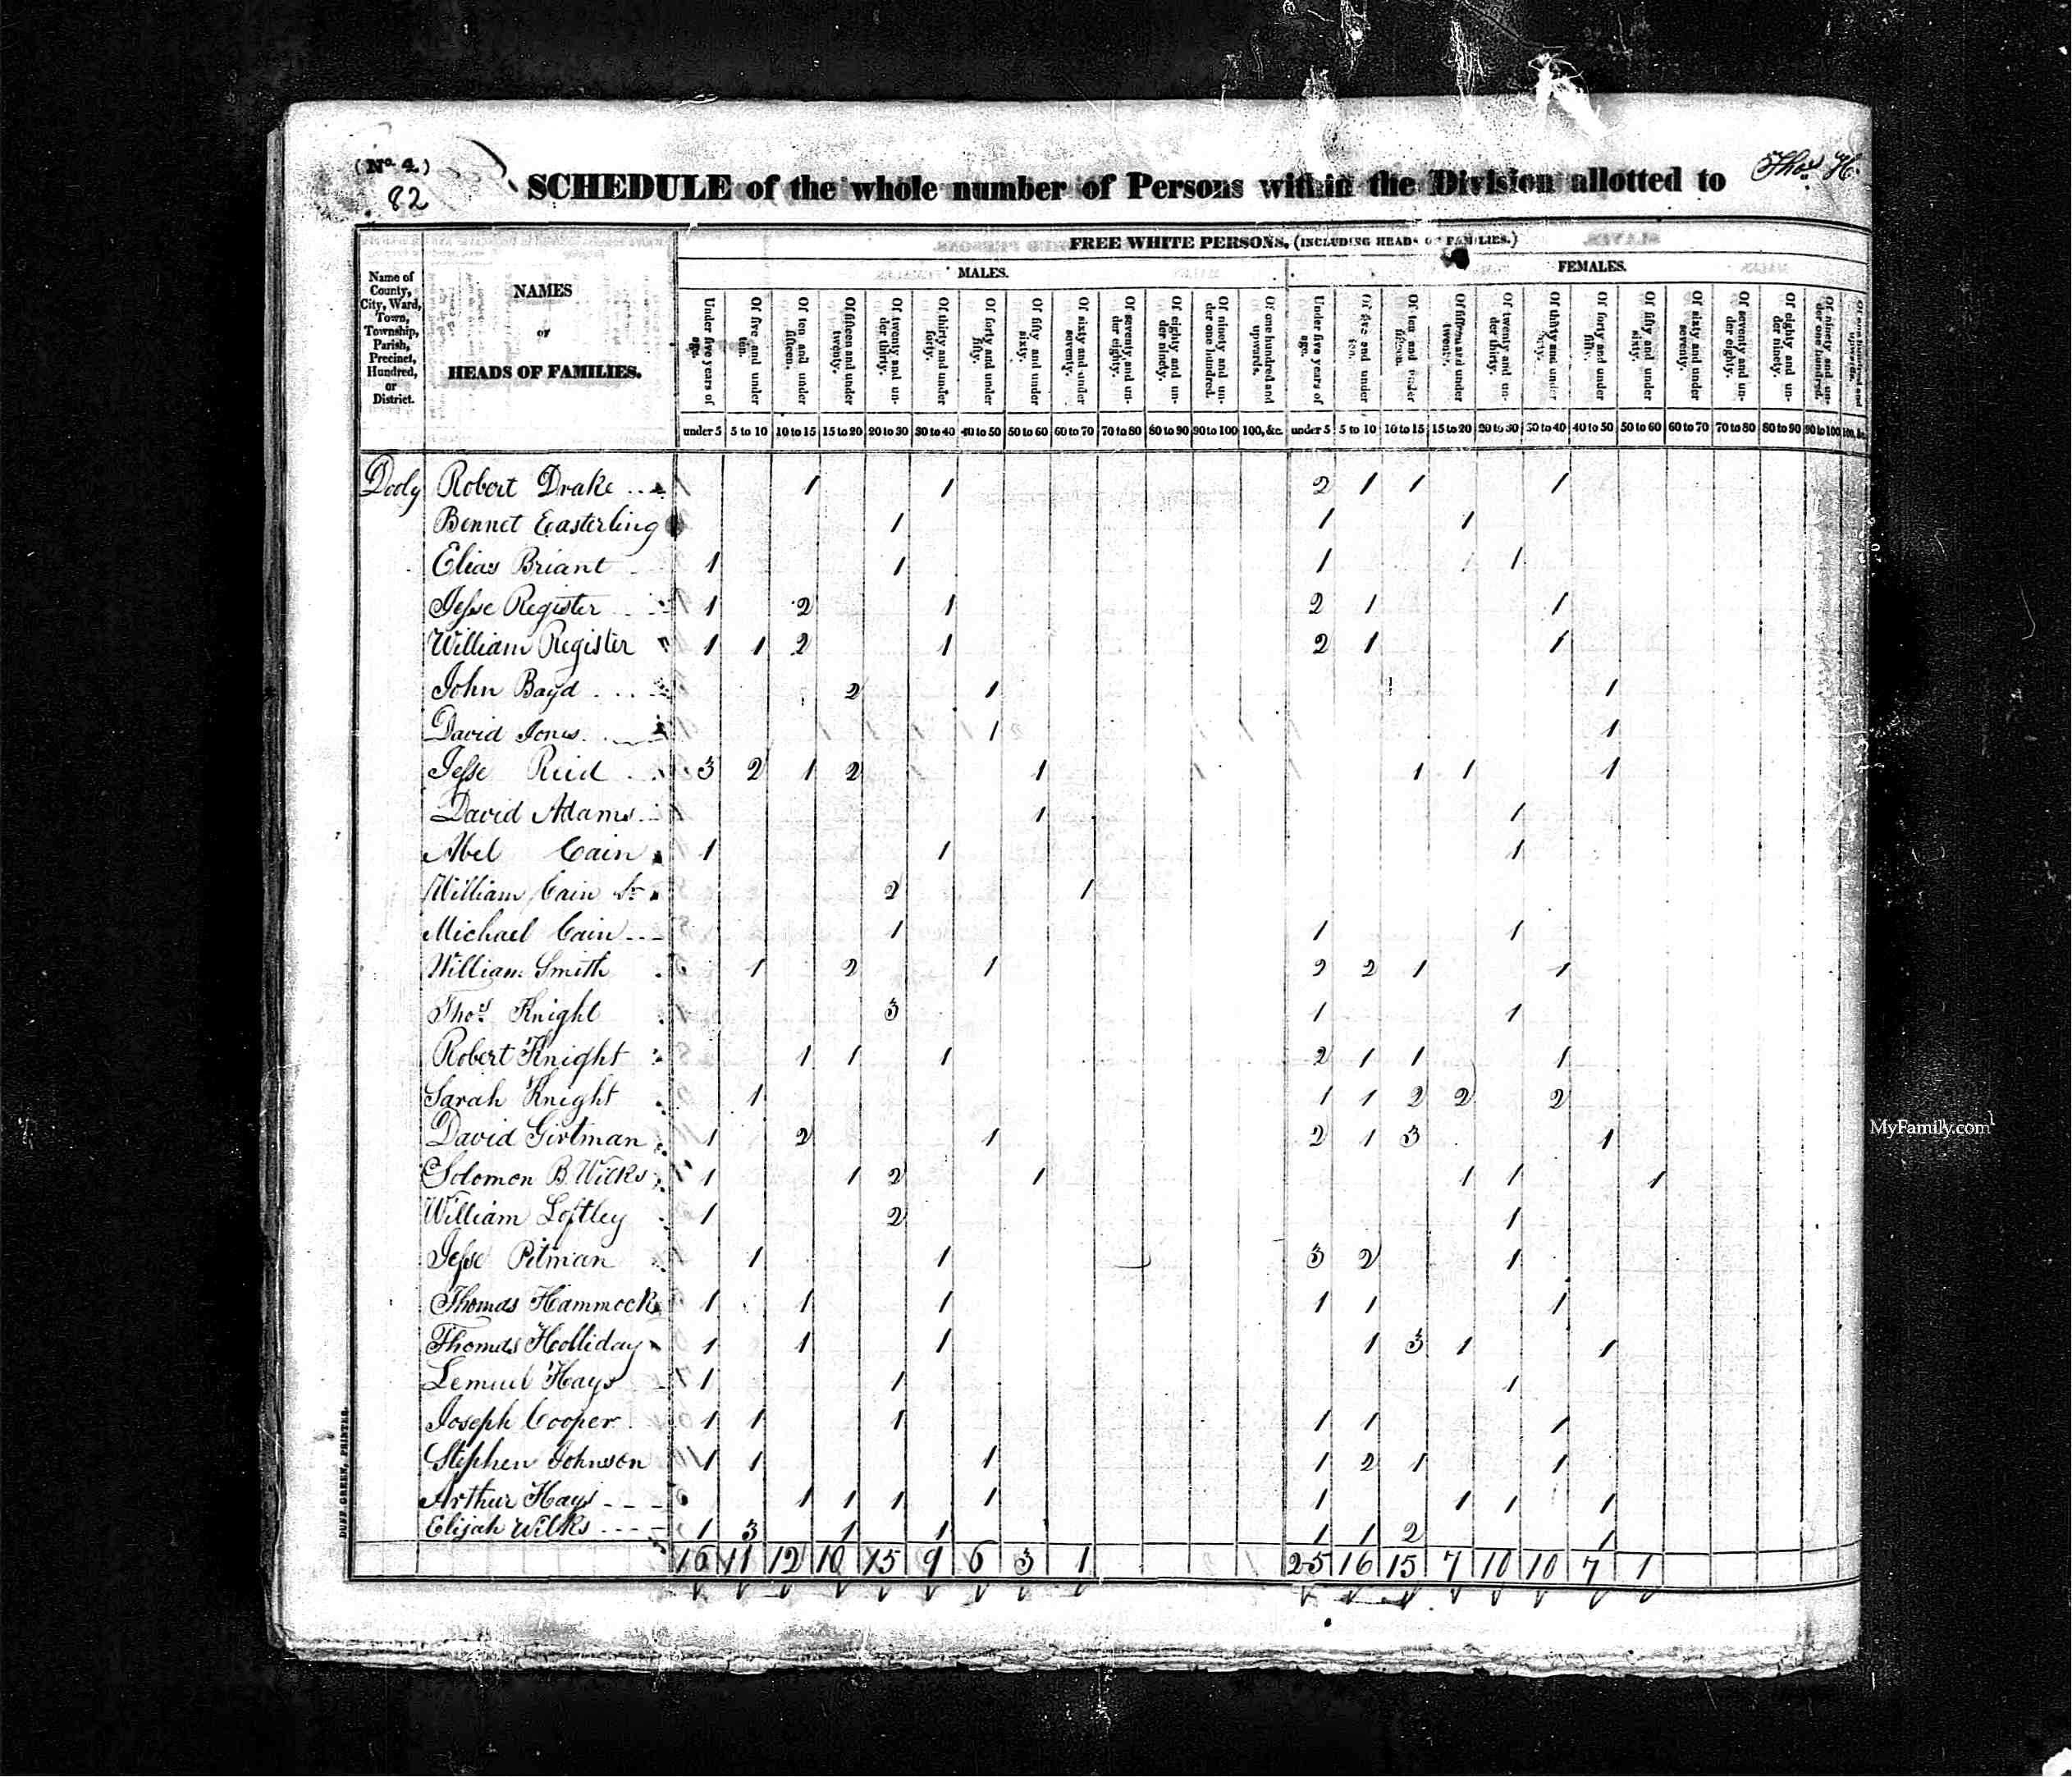 (No. 4.)
82
SCHEDULE of the whole number of Persons within the Division allotted to Thos. H.
FREE WHITE PERSONS, (INCLUDING HEADS OF FAMILIES.)
MALES. FEMALES.
Name of County, City, Ward, Town, Township, Parish, Precinct, Hundred, or District.
NAMES
OF
HEADS OF FAMILIES.
Under five years of age. Of five and under ten. Of ten and under fifteen. Of fifteen and under twenty. Of twenty and under thirty. Of thirty and under forty. Of forty and under fifty. Of fifty and under sixty. Of sixty and under seventy. Of seventy and under eighty. Of eighty and under ninety. Of ninety and under one hundred. Of one hundred and upwards. Under five years of age. Of five and under ten. Of ten and under fifteen. Of fifteen and under twenty. Of twenty and under thirty. Of thirty and under forty. Of forty and under fifty. Of fifty and under sixty. Of sixty and under seventy. Of seventy and under eighty. Of eighty and under ninety. Of ninety and under one hundred. Of one hundred and upwards.
under 5 5 to 10 10 to 15 15 to 20 20 to 30 30 to 40 40 to 50 50 to 60 60 to 70 70 to 80 80 to 90 90 to 100 100, &c. under 5 5 to 10 10 to 15 15 to 20 20 to 30 30 to 40 40 to 50 50 to 60 60 to 70 70 to 80 80 to 90 90 to 100 100, &c.
Dooly Robert Drake 1 1 2 1 1 1
Bennet Easterling 1 1 1
Elias Briant 1 1 1 1
Jesse Register 1 2 1 2 1 1
William Register 1 1 2 1 2 1 1
John Bayd 2 1 1 1
David Jones 1 1
Jesse Reid 3 2 1 2 1 1 1 1
David Adams 1 1
Abel Cain 1 1 1
William Cain Sr 2 1
Michael Cain 1 1 1
William Smith 1 2 1 2 2 1 1
Thos. Knight 3 1 1
Robert Knight 1 1 1 2 1 1 1
Sarah Knight 1 1 1 2 2 2
David Girtman 1 2 1 2 1 3 1
Solomon B. Wilks 1 1 2 1 1 1 1
William Loftley 1 2 1
Jesse Pitman 1 1 3 2 1
Thomas Hammock 1 1 1 1 1 1
Thomas Holliday 1 1 1 1 3 1 1
Lemuel Hays 1 1 1
Joseph Cooper 1 1 1 1 1 1
Stephen Johnson 1 1 1 1 2 1 1
Arthur Hays 1 1 1 1 1 1 1 1
Elijah Wilks 1 3 1 1 1 1 2 1
16 11 12 10 15 9 6 3 1 25 16 15 7 10 10 7 1
DUFF GREEN, PRINTER.
MyFamily.com